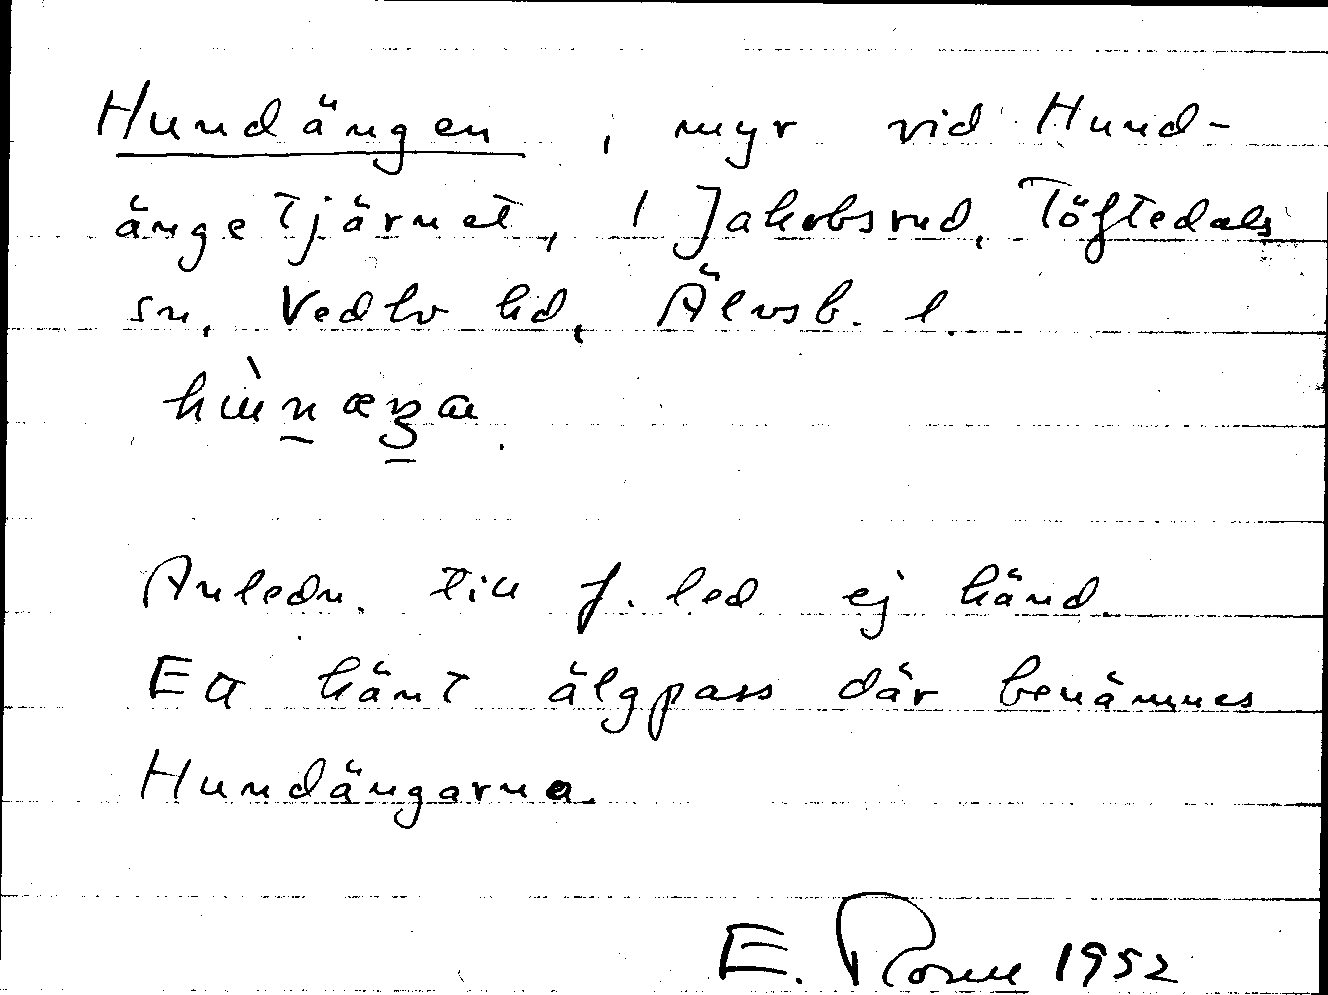 Hundängen, myr vid Hund-
ängetjärnet, 1 Jakobsrud, Töftedals
sn, Vedbo hd, Älvsb. l.
Anledn. till f. led ej känd.
Ett känt älgpass där benämnes
Hundängarna.
E. Rosell 1952